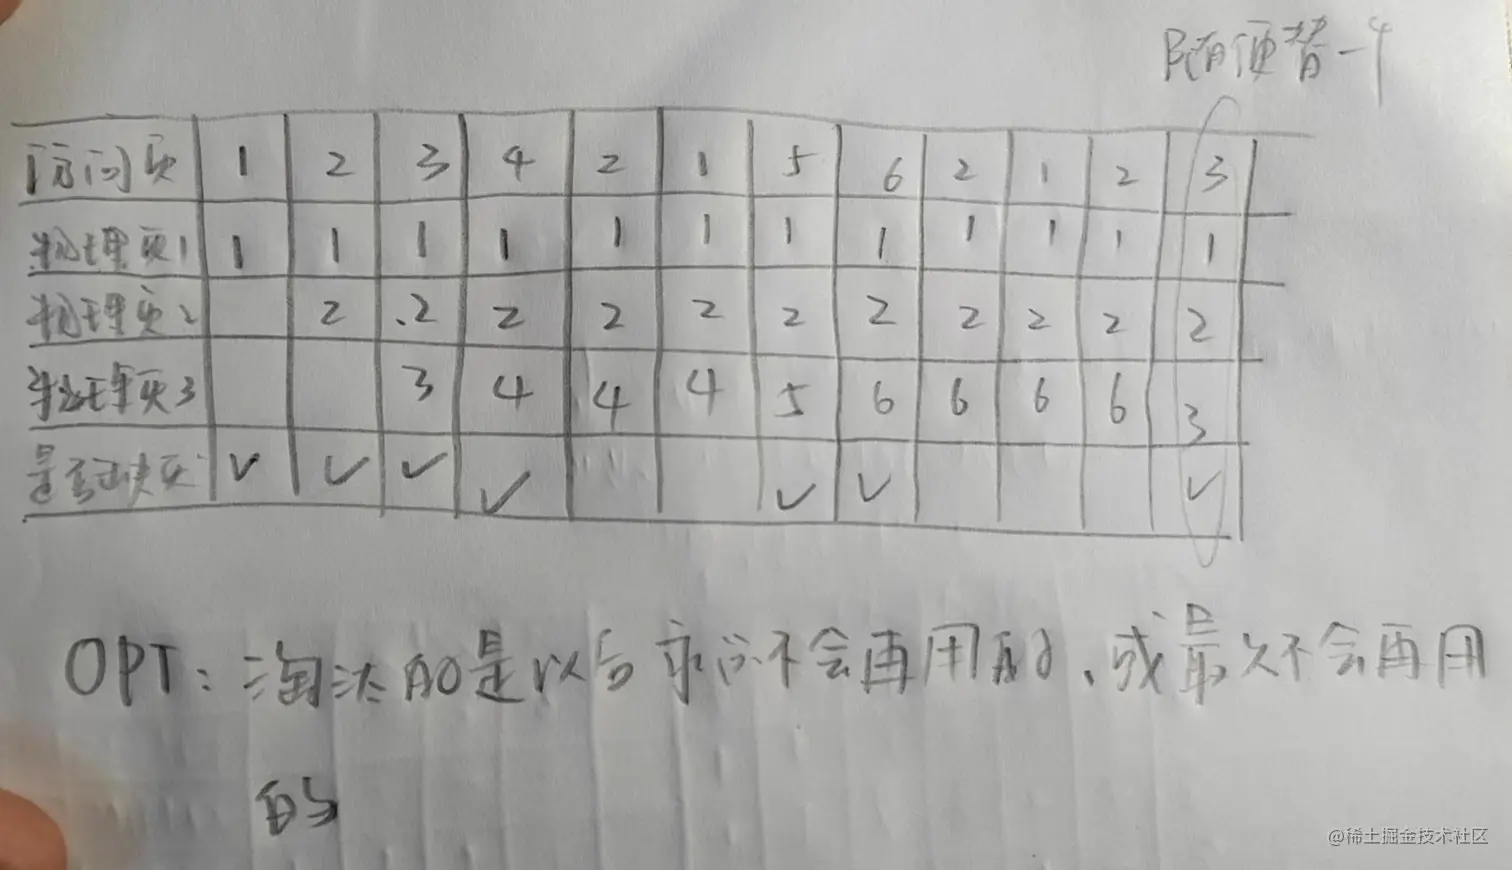 随便替一个
访问页 1 2 3 4 2 1 5 6 2 1 2 3
物理页1 1 1 1 1 1 1 1 1 1 1 1 1
物理页2 2 2 2 2 2 2 2 2 2 2 2
物理页3 3 4 4 4 5 6 6 6 6 3
是否缺页 ✓ ✓ ✓ ✓ ✓ ✓ ✓
OPT: 淘汰的是以后永远不会再用的、或最久不会再用
的
@稀土掘金技术社区